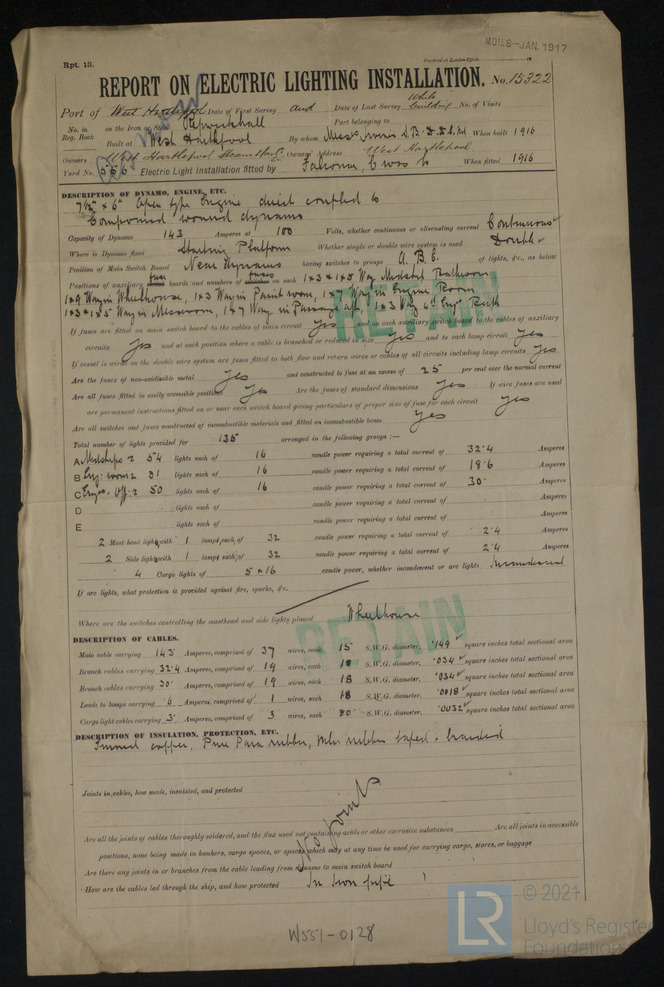 MON. 8-JAN. 1917
Rpt. 13.
REPORT ON ELECTRIC LIGHTING INSTALLATION. No. 15322
Port of West Hartlepool Date of First Survey and Date of Last Survey While building No. of Visits
No. in Reg. Book on the Iron or Steel Port belonging to
Built at West Hartlepool By whom When built 1916
Owners West Hartlepool Owners' Address West Hartlepool
Yard No. 556 Electric Light Installation fitted by When fitted 1916
DESCRIPTION OF DYNAMO, ENGINE, ETC.
7½" × 6" Open type Engine direct coupled to
Compound wound dynamo
Capacity of Dynamo 143 Amperes at 100 Volts, whether continuous or alternating current Continuous
Where is Dynamo fixed Starting Platform Whether single or double wire system is used Double
Position of Main Switch Board Near dynamo having switches to groups A. B. C. of lights, &c., as below
Positions of auxiliary fuse boards and numbers of fuses on each 1×3 & 1×5 Way Midship
1×9 Way in Wheelhouse, 1×3 Way in Paint room, 1×7 Way in Engine Room
1×3 & 1×5 Way in Messroom, 1×7 Way in Passage aft, 1×3 Way
RETAIN
If fuses are fitted on main switch board to the cables of main circuit Yes and on each auxiliary switch board to the cables of auxiliary
circuits Yes and at each position where a cable is branched or reduced in size Yes and to each lamp circuit Yes
If vessel is wired on the double wire system are fuses fitted to both flow and return wires or cables of all circuits including lamp circuits Yes
Are the fuses of non-oxidisable metal Yes and constructed to fuse at an excess of 25 per cent over the normal current
Are all fuses fitted in easily accessible positions Yes Are the fuses of standard dimensions Yes If wire fuses are used
are permanent instructions fitted on or near each switch board giving particulars of proper size of fuse for each circuit Yes
Are all switches and fuses constructed of incombustible materials and fitted on incombustible bases Yes
Total number of lights provided for 135 arranged in the following groups :—
A Midships 2 54 lights each of 16 candle power requiring a total current of 32.4 Amperes
B Eng. room 2 31 lights each of 16 candle power requiring a total current of 18.6 Amperes
C Engrs. Off. 2 50 lights each of 16 candle power requiring a total current of 30 Amperes
D lights each of candle power requiring a total current of Amperes
E lights each of candle power requiring a total current of Amperes
2 Mast head light with 1 lamps each of 32 candle power requiring a total current of 2.4 Amperes
2 Side light with 1 lamps each of 32 candle power requiring a total current of 2.4 Amperes
4 Cargo lights of 5 × 16 candle power, whether incandescent or arc lights Incandescent
If arc lights, what protection is provided against fire, sparks, &c.
Where are the switches controlling the masthead and side lights placed Wheelhouse
RETAIN
DESCRIPTION OF CABLES.
Main cable carrying 143 Amperes, comprised of 37 wires, each 15 S.W.G. diameter, .149 square inches total sectional area
Branch cables carrying 32.4 Amperes, comprised of 19 wires, each 18 S.W.G. diameter, .034 square inches total sectional area
Branch cables carrying 30 Amperes, comprised of 19 wires, each 18 S.W.G. diameter, .034 square inches total sectional area
Leads to lamps carrying Amperes, comprised of 1 wires, each 18 S.W.G. diameter, .0018 square inches total sectional area
Cargo light cables carrying 3 Amperes, comprised of 3 wires, each S.W.G. diameter, .0032 square inches total sectional area
DESCRIPTION OF INSULATION, PROTECTION, ETC.
Tinned copper, Pure Para rubber, rubber taped & braided
Joints in cables, how made, insulated, and protected
No joints
Are all the joints of cables thoroughly soldered, and the flux used not containing acids or other corrosive substances Are all joints in accessible
positions, none being made in bunkers, cargo spaces, or spaces which may at any time be used for carrying cargo, stores, or baggage
Are there any joints in or branches from the cable leading from dynamo to main switch board
How are the cables led through the ship, and how protected In iron pipe
W551-0128
LR
© 2021
Lloyd's Register
Foundation